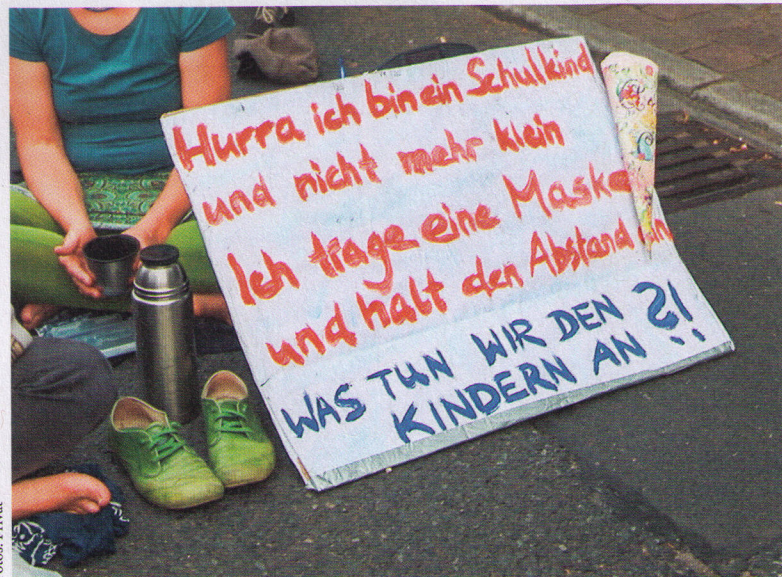 Hurra ich bin ein Schulkind
und nicht mehr klein
Ich trage eine Maske
und halt den Abstand
WAS TUN WIR DEN
KINDERN AN ?!